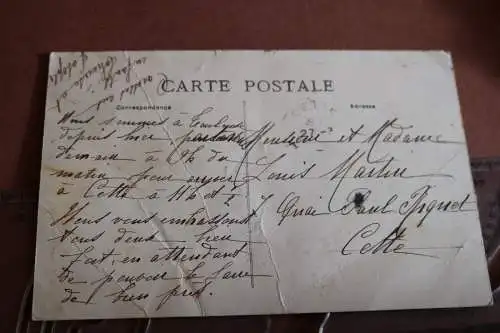 CARTE POSTALE
Correspondance
Adresse
Nous sommes à
depuis hier
demain à 9h du
matin pour arriver
à Cette à 11h et ½
Nous vous embrassons
tous deux bien
fort, en attendant
de pouvoir le faire
de bien près.
Monsieur et Madame
Louis Martin
7 Quai Paul Riquet
Cette